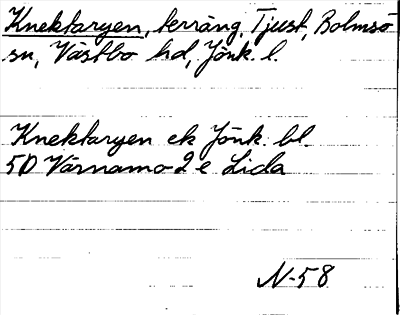 Knektaryen, terräng, Tjust, Bolmsö
sn, Västbo hd, Jönk. l.
Knektaryen ek Jönk. bl.
5D Värnamo 2 e Lida
N-58